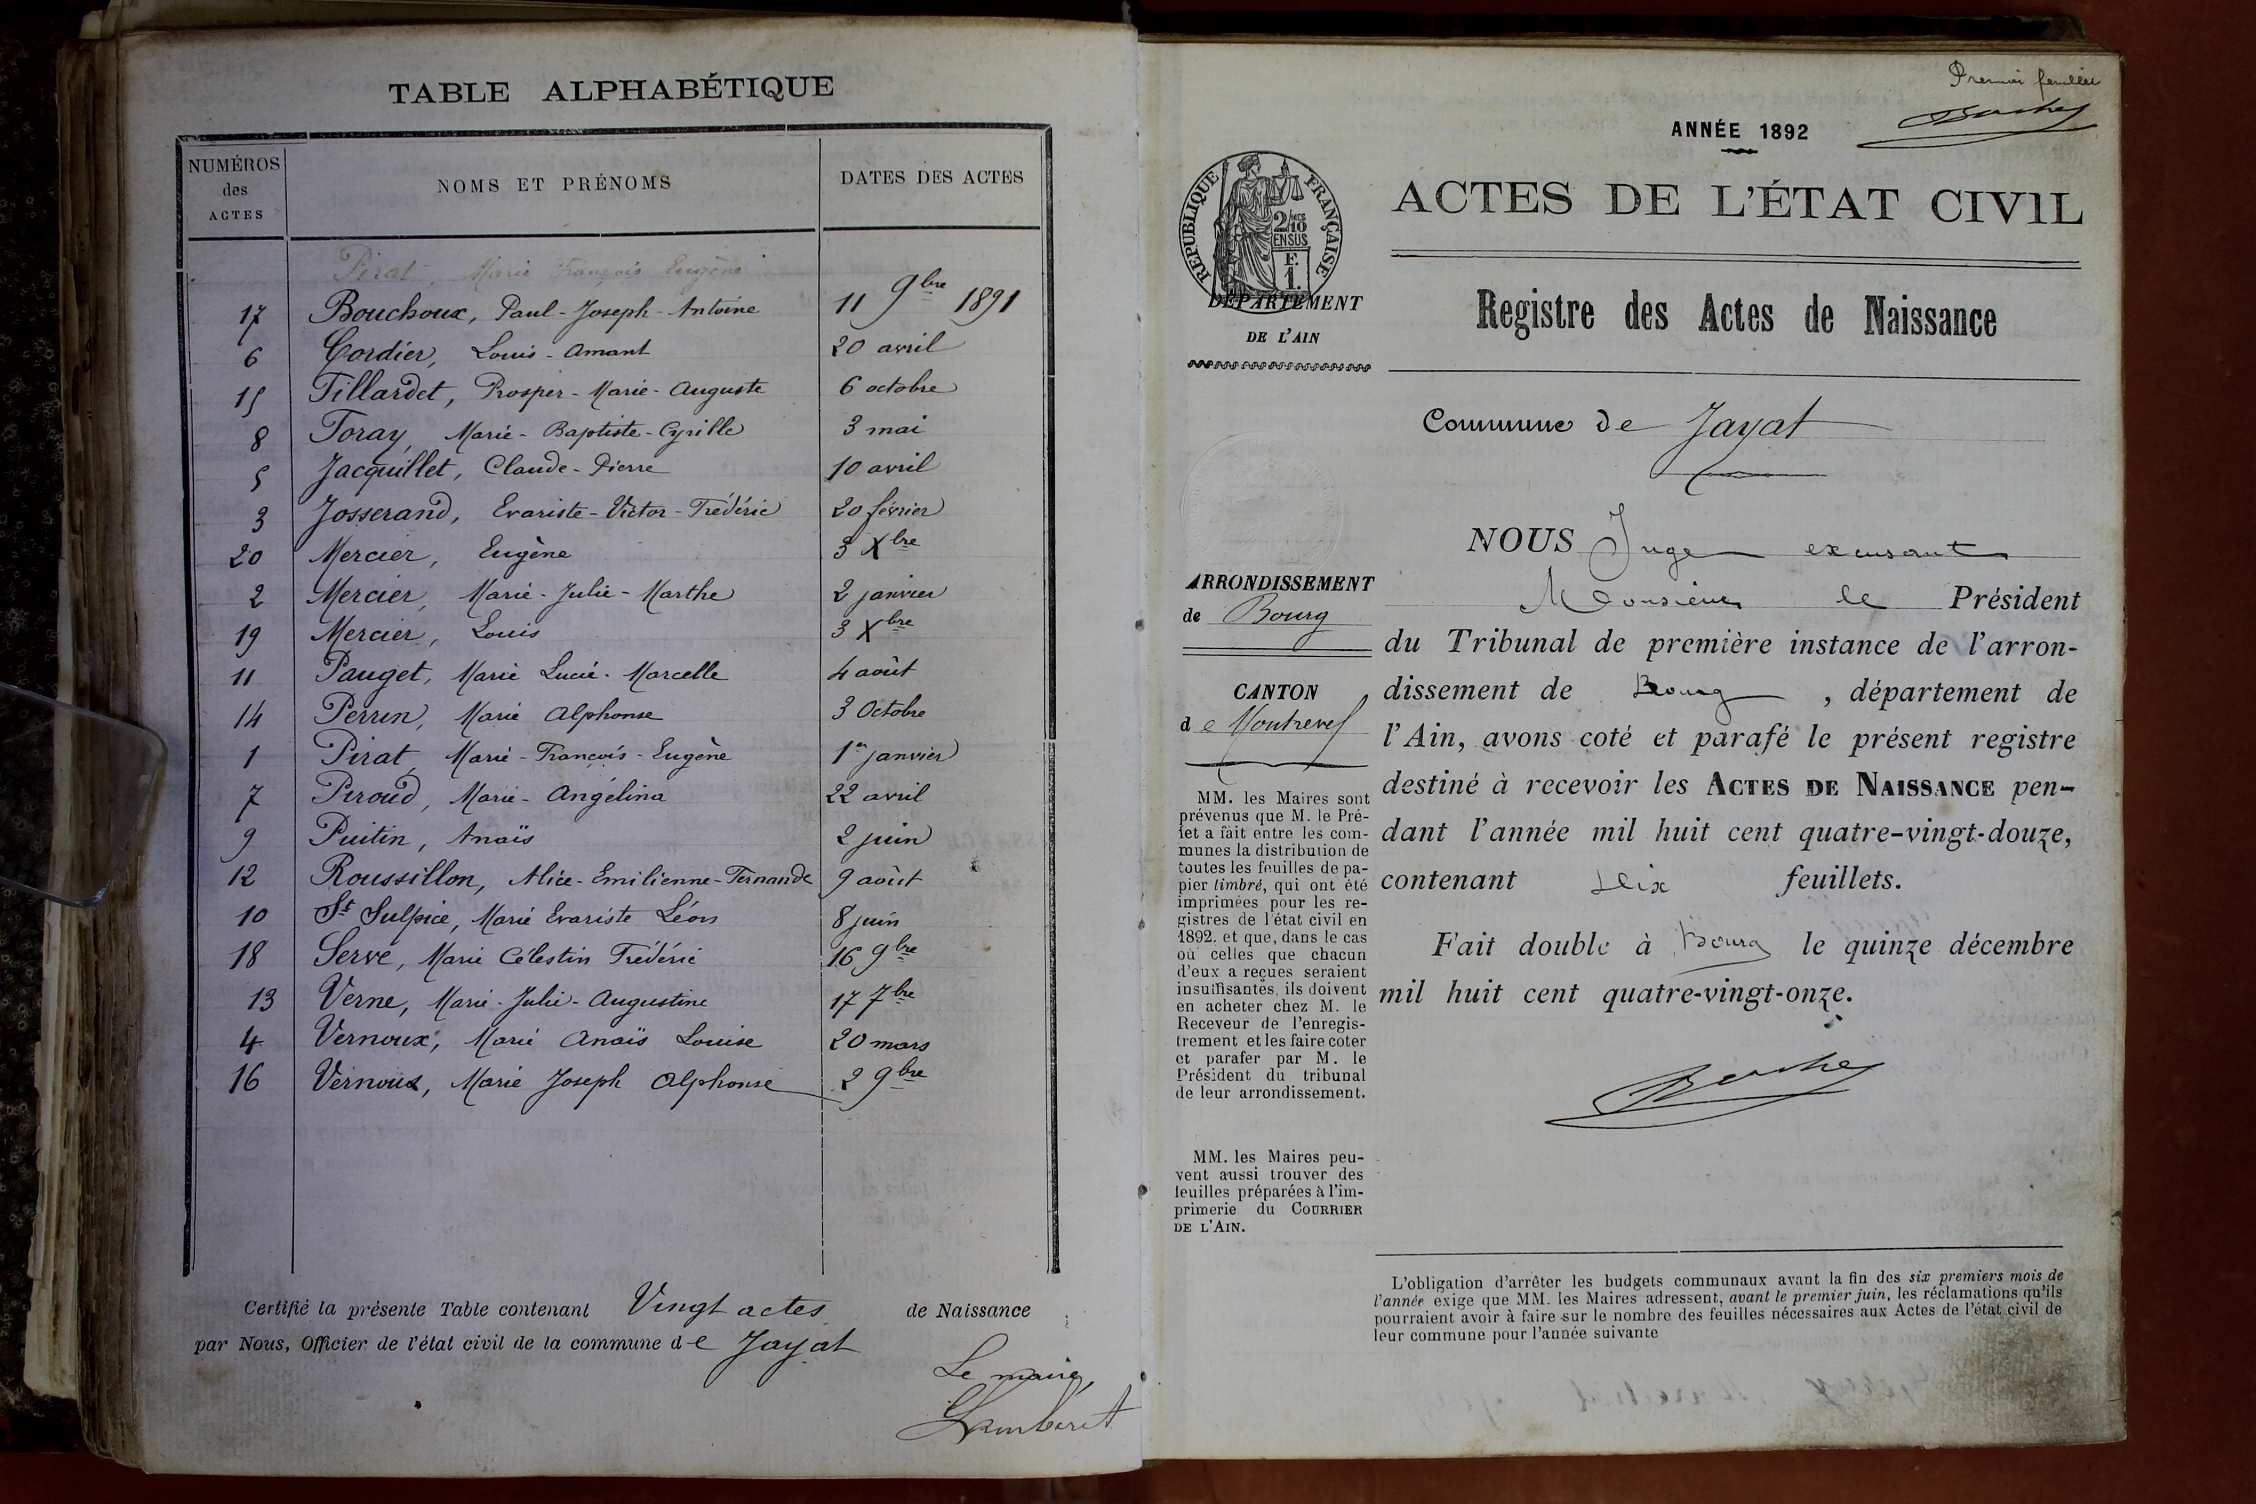 TABLE ALPHABÉTIQUE
NUMÉROS des ACTES NOMS ET PRÉNOMS DATES DES ACTES
Pirat, Marie François Eugène
17 Bouchoux, Paul-Joseph-Antoine 11 9bre 1891
6 Cordier, Louis-Amant 20 avril
15 Fillardet, Prosper-Marie-Auguste 6 octobre
8 Foray, Marie-Baptiste-Cyrille 3 mai
5 Jacquillet, Claude-Pierre 10 avril
3 Josserand, Evariste-Victor-Frédéric 20 février
20 Mercier, Eugène 3 Xbre
2 Mercier, Marie-Julie-Marthe 2 janvier
19 Mercier, Louis 3 Xbre
11 Pauget, Marie Lucie-Marcelle 4 août
14 Perrin, Marie Alphonse 3 Octobre
1 Pirat, Marie-François-Eugène 1er janvier
7 Piroud, Marie-Angélina 22 avril
9 Puitin, Anaïs 2 juin
12 Roussillon, Alice-Emilienne-Fernande 9 août
10 St Sulpice, Marie Evariste Léon 8 juin
18 Serve, Marie Célestin Frédéric 16 9bre
13 Verne, Marie-Julie-Augustine 17 7bre
4 Vernoux, Marie Anaïs Louise 20 mars
16 Vernoux, Marie Joseph Alphonse 2 9bre
Certifié la présente Table contenant Vingt actes de Naissance
par Nous, Officier de l'état civil de la commune de Jayat
Le maire,
Premier feuillet
ANNÉE 1892
RÉPUBLIQUE FRANÇAISE
2/10
EN SUS
F.
1.
DÉPARTEMENT
DE L'AIN
ACTES DE L'ÉTAT CIVIL
Registre des Actes de Naissance
Commune de Jayat
ARRONDISSEMENT
de Bourg
CANTON
de Montrevel
MM. les Maires sont
prévenus que M. le Pré-
fet a fait entre les com-
munes la distribution de
toutes les feuilles de pa-
pier timbré, qui ont été
imprimées pour les re-
gistres de l'état civil en
1892. et que, dans le cas
où celles que chacun
d'eux a reçues seraient
insuffisantes, ils doivent
en acheter chez M. le
Receveur de l'enregis-
trement et les faire coter
et parafer par M. le
Président du tribunal
de leur arrondissement.
MM. les Maires peu-
vent aussi trouver des
feuilles préparées à l'im-
primerie du COURRIER
DE L'AIN.
NOUS Juge excusant
Monsieur le Président
du Tribunal de première instance de l'arron-
dissement de Bourg, département de
l'Ain, avons coté et parafé le présent registre
destiné à recevoir les ACTES DE NAISSANCE pen-
dant l'année mil huit cent quatre-vingt-douze,
contenant dix feuillets.
Fait double à Bourg le quinze décembre
mil huit cent quatre-vingt-onze.
L'obligation d'arrêter les budgets communaux avant la fin des six premiers mois de
l'année exige que MM. les Maires adressent, avant le premier juin, les réclamations qu'ils
pourraient avoir à faire sur le nombre des feuilles nécessaires aux Actes de l'état civil de
leur commune pour l'année suivante